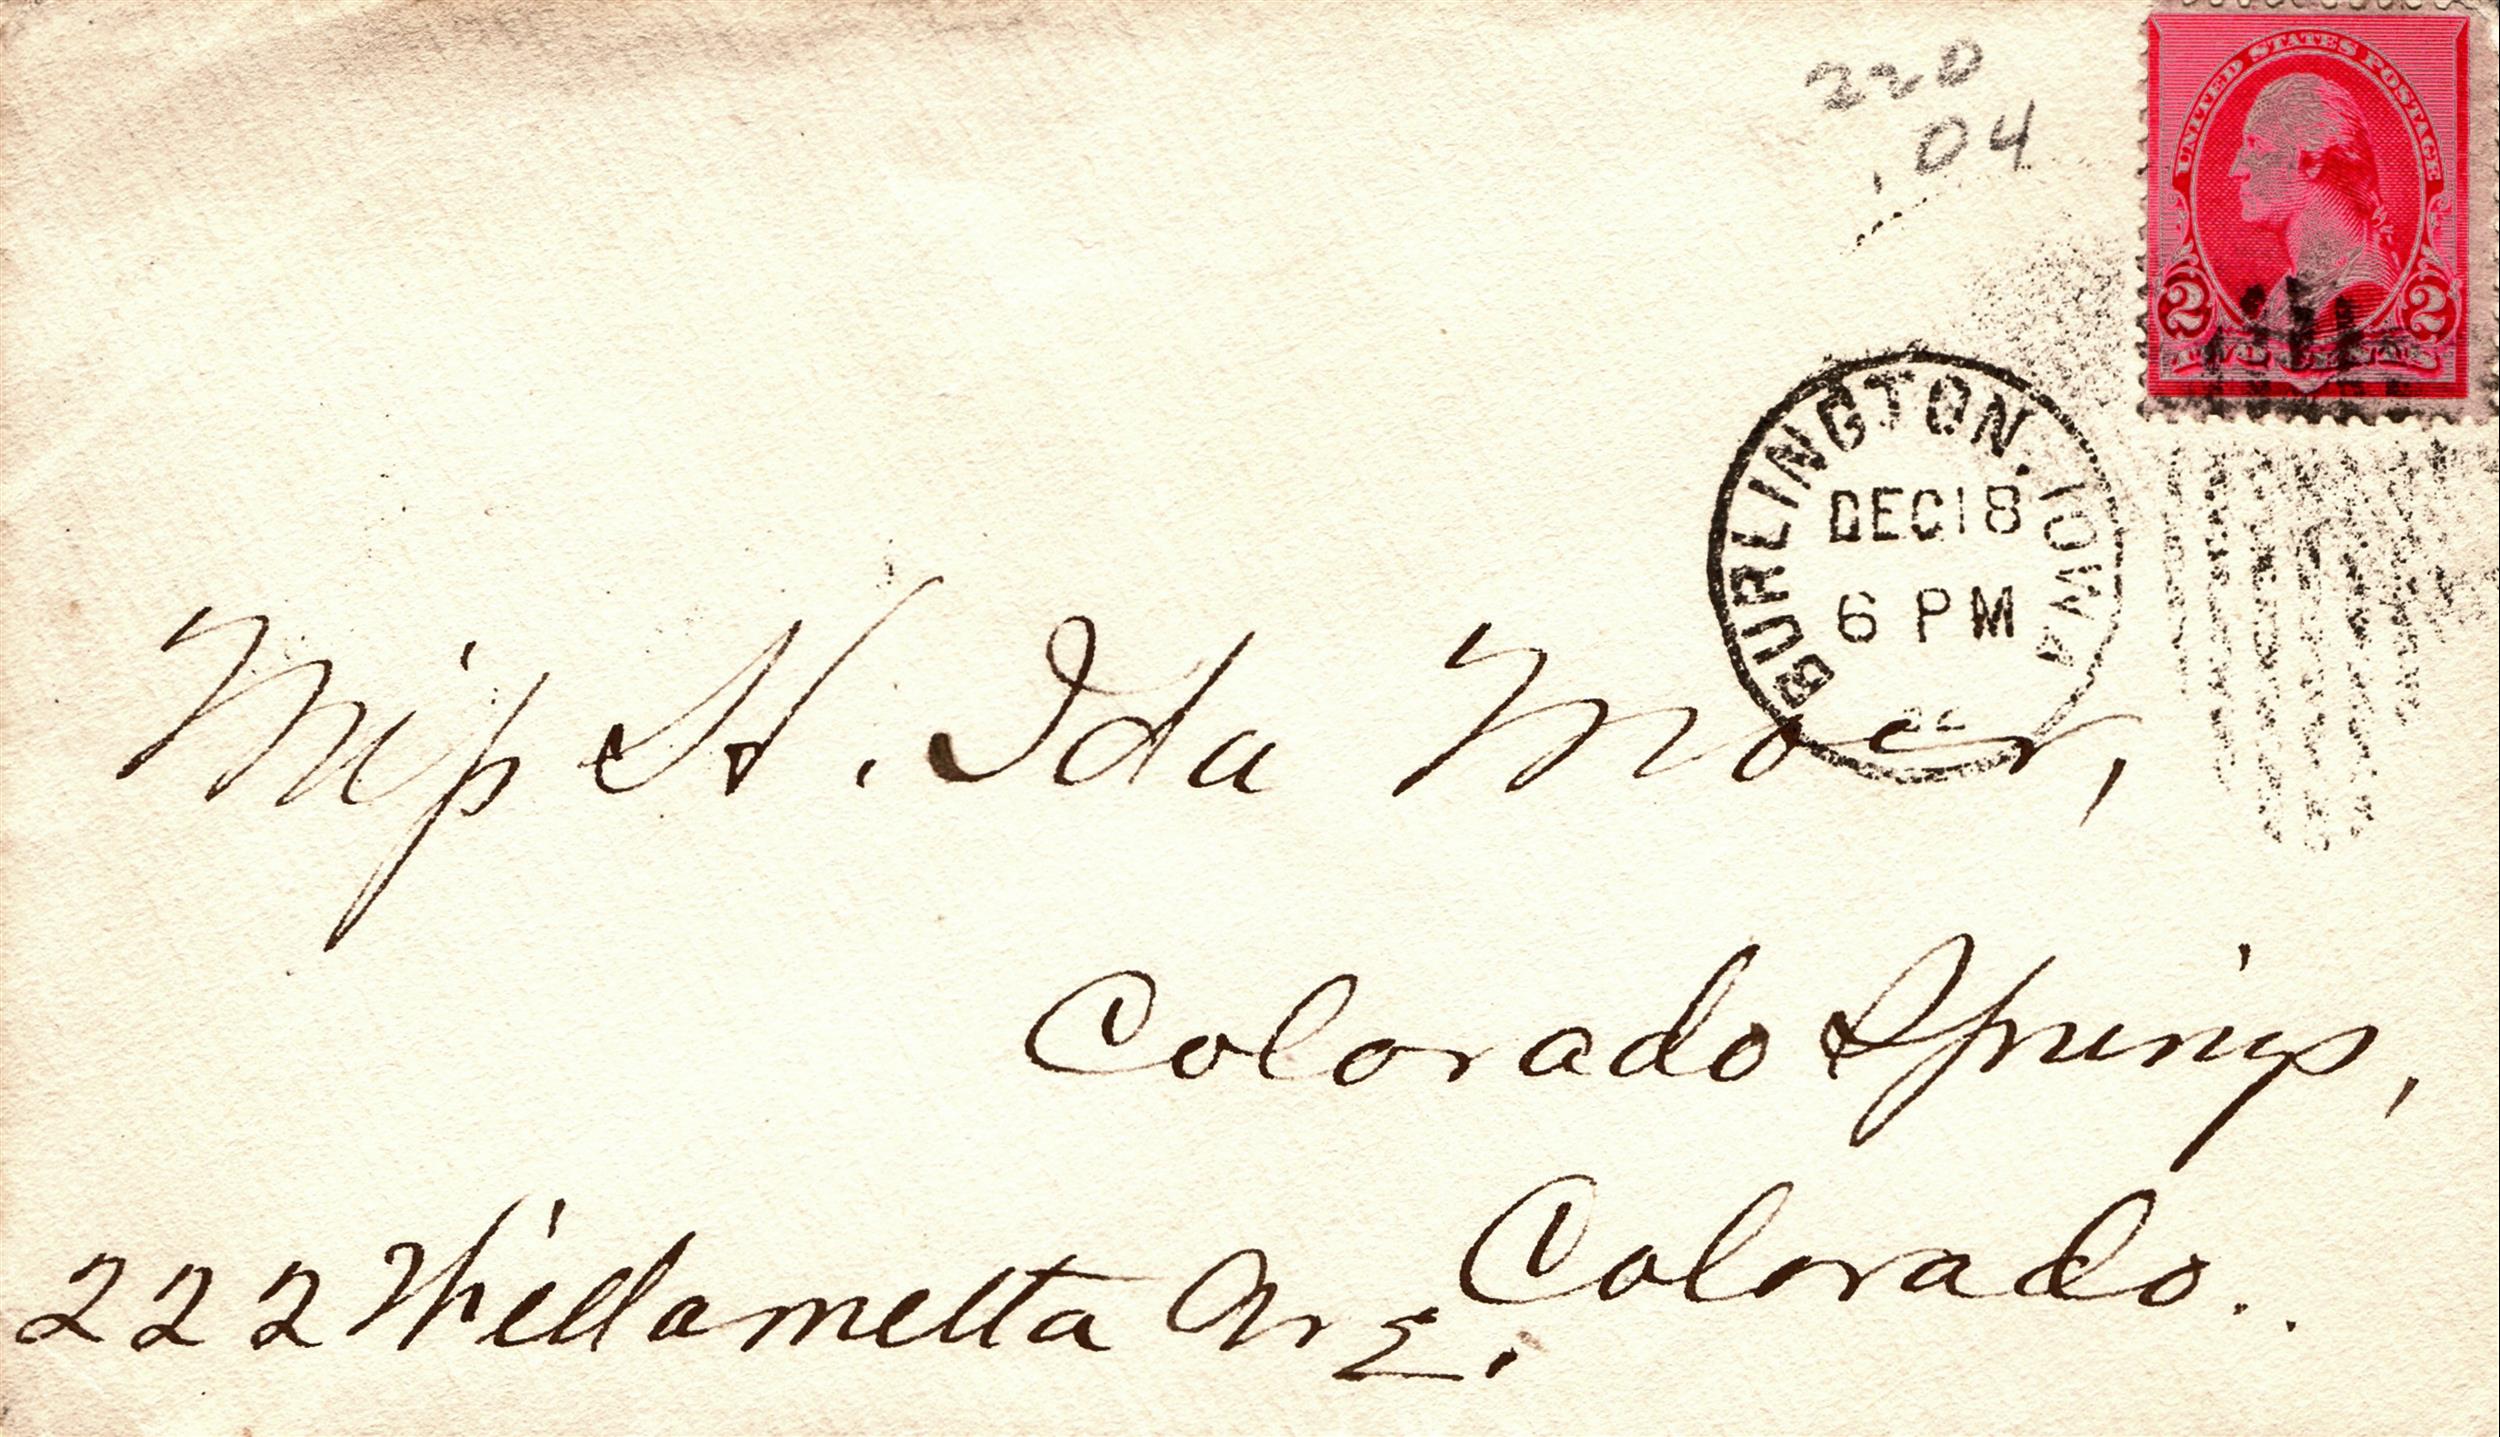 220
.04
UNITED STATES POSTAGE
2 2
TWO CENTS
BURLINGTON, IOWA
DEC 18
6 PM
Miss H. Ida Moer,
Colorado Springs,
Colorado.
222 Willametta Ave.